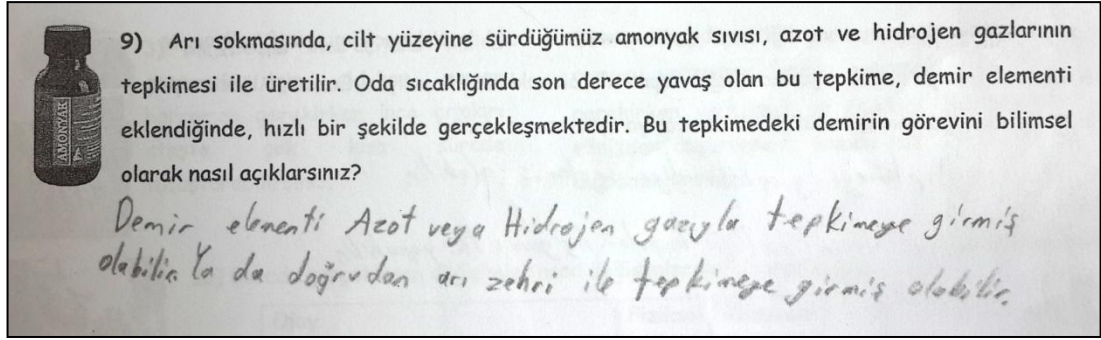 9) Arı sokmasında, cilt yüzeyine sürdüğümüz amonyak sıvısı, azot ve hidrojen gazlarının
tepkimesi ile üretilir. Oda sıcaklığında son derece yavaş olan bu tepkime, demir elementi
eklendiğinde, hızlı bir şekilde gerçekleşmektedir. Bu tepkimedeki demirin görevini bilimsel
olarak nasıl açıklarsınız?
AMONYAK
Demir elementi Azot veya Hidrojen gazıyla tepkimeye girmiş
olabilir. Ya da doğrudan arı zehri ile tepkimeye girmiş olabilir.